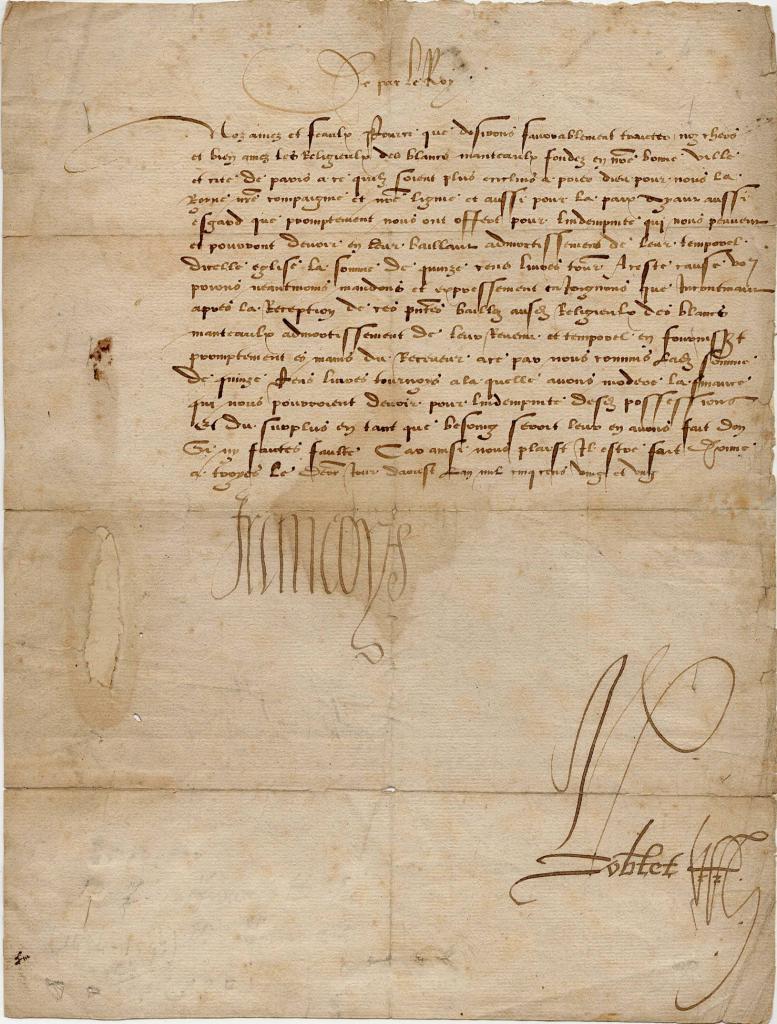 De par le Roy
Noz amez et feaulx Pource que desirons favorablement traicter noz chers
et bien amez les Religieulx des blancs manteaulx fondez en nre bonne ville
et cite de paris a ce quilz soient plus enclins a prier dieu pour nous la
Royne nre compaigne et nre ligne et aussi pour la paix ayant aussi
esgard que promptement nous ont offert pour lindempnite qui nous peuvent
et pourront devoir en leur baillant admortissement de leur temporel
dicelle eglise la somme de quinze cens livres tour A ceste cause
voulons neantmoins mandons et expressement enjoignons que Incontinant
apres la Reception de ces pntes baillez ausd Religieulx des blancs
manteaulx admortissement de leur Revenu et temporel en fournisst
promptement es mains du Receveur a ce par nous commis lad somme
de quinze Cens livres tournoys a la quelle avons modere la finance
qui nous pourroient devoir pour lindempnite desd possessions
Et du surplus en tant que besoing seroit leur en avons fait don
Si ny faictes faulte Car ainsi nous plaist Il estre fait Donne
a troyes le Jour daoust Lan mil cinq cens vingt et ung
Francoys
Robertet